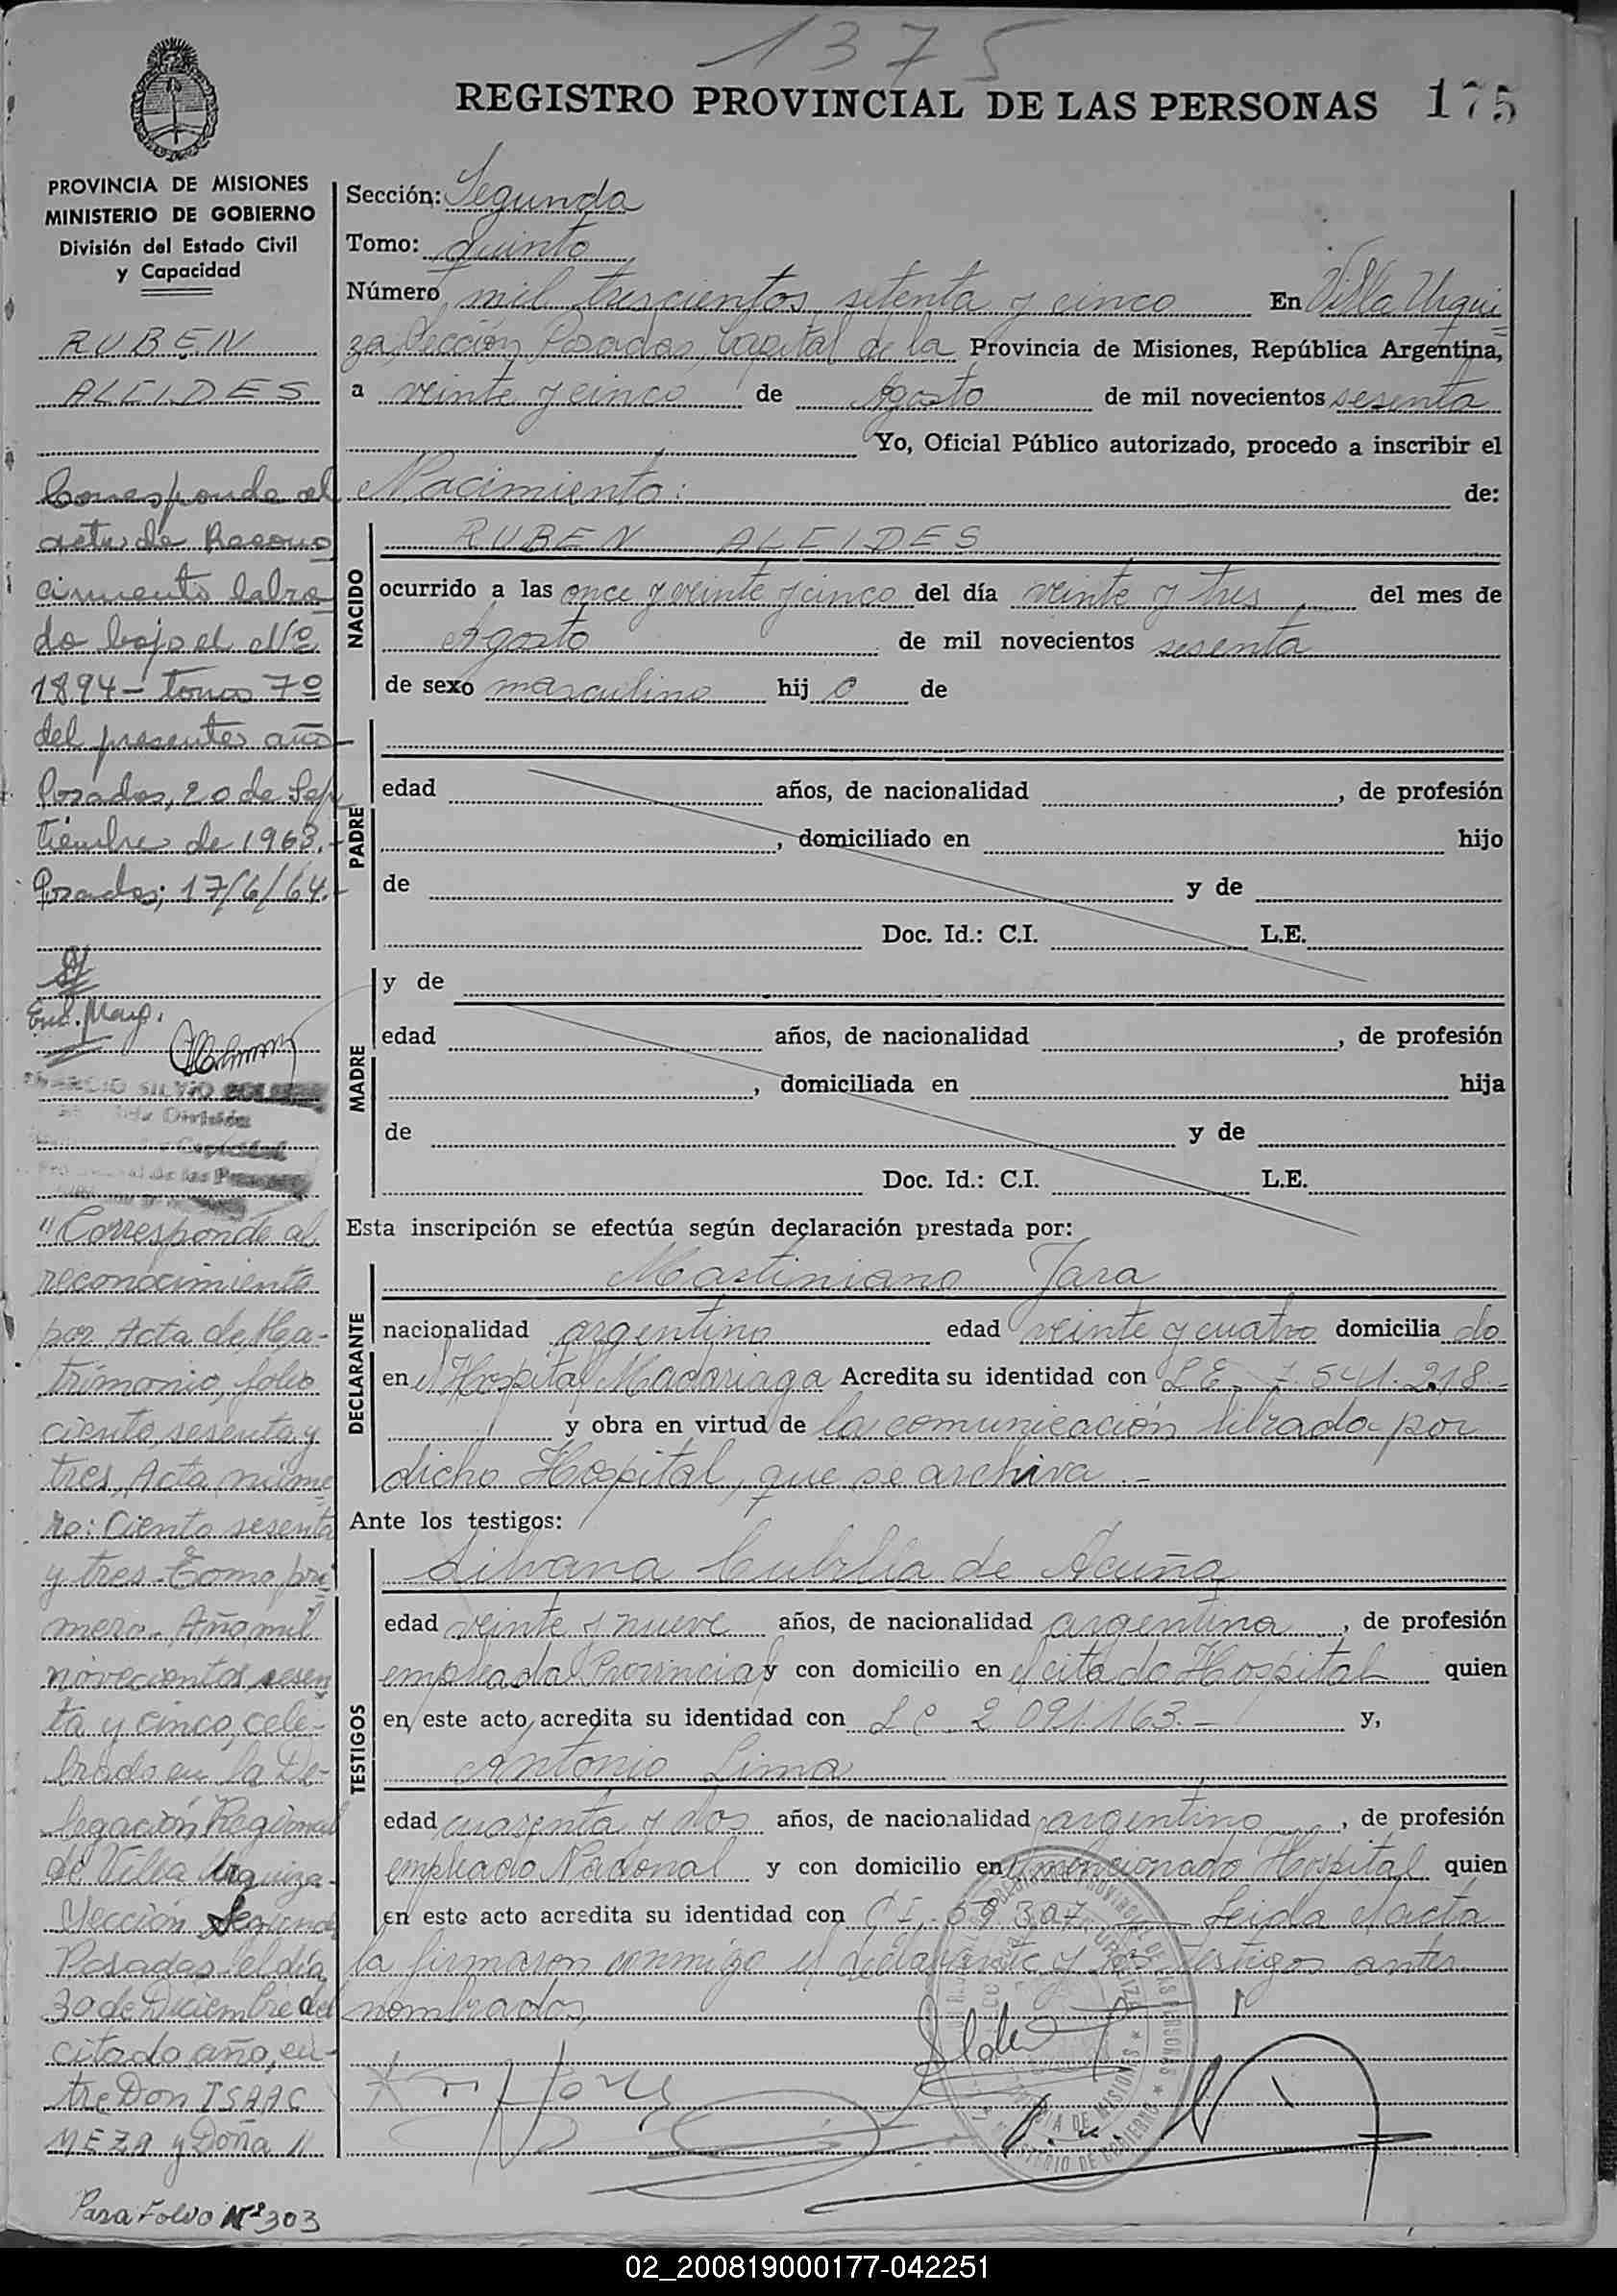 1375
REGISTRO PROVINCIAL DE LAS PERSONAS 175
PROVINCIA DE MISIONES
MINISTERIO DE GOBIERNO
División del Estado Civil
y Capacidad
RUBEN
ALCIDES
Corresponde al
acta de Recono
cimiento labra
do bajo el Nº
1894 - tomo 7º
del presente año
Posadas, 20 de Sep
tiembre de 1963.-
Posadas; 17/6/64.-
SILVIO
División
Capacidad
de las
"Corresponde al
reconocimiento
por Acta de Ma-
trimonio, folio
ciento sesenta y
tres, Acta núme
ro: Ciento sesenta
y tres - Tomo pri
mero. Año mil
novecientos sesen
ta y cinco, cele-
brado en la De-
legación Regional
de Villa Urquiza-
Sección Segunda
Posadas el día
30 de Diciembre del
citado año, en-
tre Don ISAAC
MEZA y Doña //
Para Folio Nº 303
Sección: Segunda
Tomo: quinto
Número mil trescientos setenta y cinco En Villa Urqui
za, Sección Posadas, Capital de la Provincia de Misiones, República Argentina,
a veinte y cinco de Agosto de mil novecientos sesenta
Yo, Oficial Público autorizado, procedo a inscribir el
Nacimiento: de:
NACIDO
RUBEN ALCIDES
ocurrido a las once y veinte y cinco del día veinte y tres del mes de
Agosto de mil novecientos sesenta
de sexo masculino hij o de
PADRE
edad años, de nacionalidad , de profesión
, domiciliado en hijo
de y de
Doc. Id.: C.I. L.E.
MADRE
y de
edad años, de nacionalidad , de profesión
, domiciliada en hija
de y de
Doc. Id.: C.I. L.E.
Esta inscripción se efectúa según declaración prestada por:
DECLARANTE
Martiniano Jara
nacionalidad argentino edad veinte y cuatro domicilia do
en el Hospital Madariaga Acredita su identidad con L E 7.541.218.-
y obra en virtud de la comunicación librada por
dicho Hospital, que se archiva.-
Ante los testigos:
TESTIGOS
Silvana Cubilla de Acuña
edad veinte y nueve años, de nacionalidad argentina , de profesión
empleada Provincial y con domicilio en el citado Hospital quien
en este acto acredita su identidad con L C 2 091.163.- y,
Antonio Lima
edad cuarenta y dos años, de nacionalidad argentino , de profesión
empleado Nacional y con domicilio en el mencionado Hospital quien
en este acto acredita su identidad con C I. 59.307 Leida el acta
la firmaron conmigo el declarante y los testigos antes
nombrados,
02_200819000177-042251